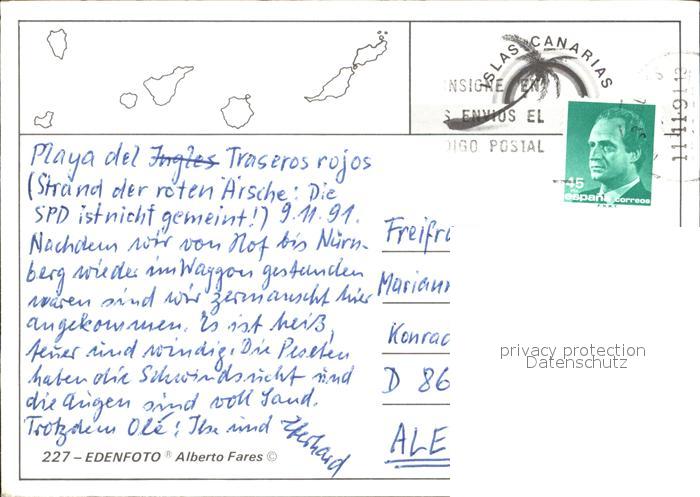 ISLAS CANARIAS
NSIGNE EN
S ENVIOS EL
DIGO POSTAL
11 11 91
45
españa correos
Playa del Ingles Traseros rojos
(Strand der roten Ärsche: Die
SPD ist nicht gemeint!) 9.11.91.
Nachdem wir von Hof bis Nürn-
berg wieder im Waggon gestanden
waren sind wir zermanscht hier
angekommen. Es ist heiß,
teuer und windig. Die Peseten
haben die Schwindsucht und
die Augen sind voll Sand.
Trotzdem Olé! Ilse und Eberhard
Freifr
Mariann
Konrad
D 86
ALE
privacy protection
Datenschutz
227 – EDENFOTO ® Alberto Fares ©